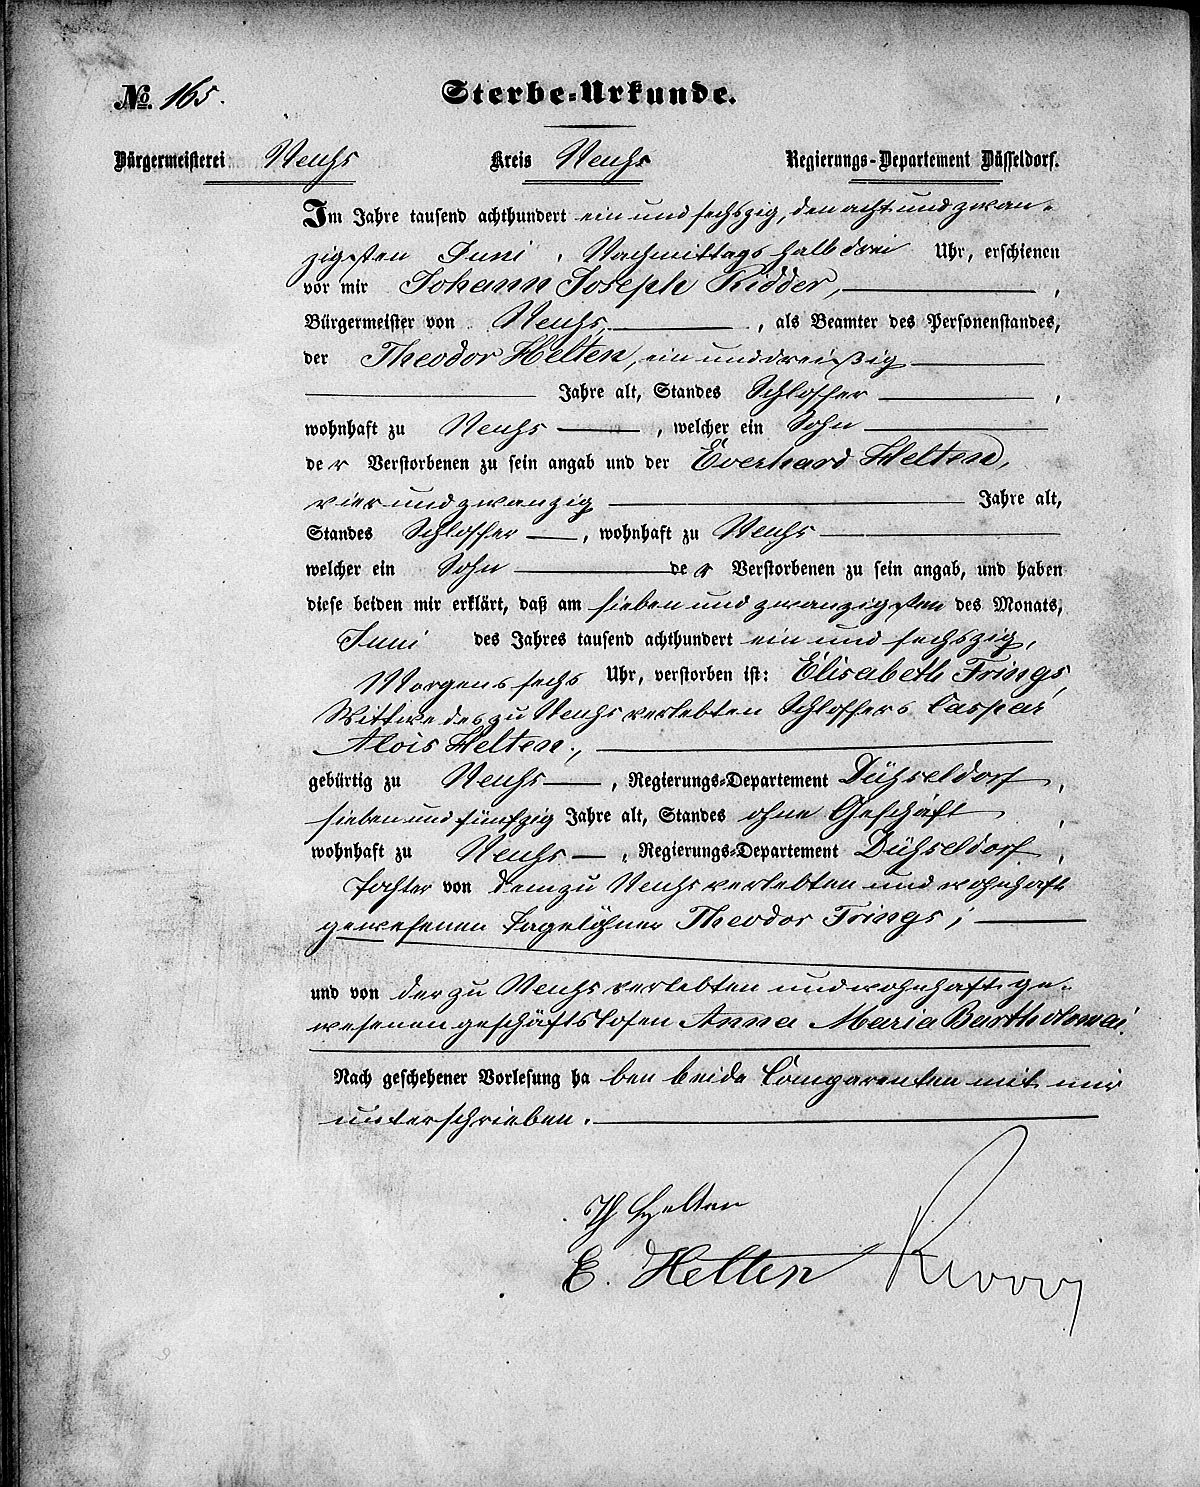 No. 165.
Sterbe-Urkunde.
Bürgermeisterei Neuhs Kreis Neuhs Regierungs-Departement Düsseldorf.
Im Jahre tausend achthundert ein und sechszig, den acht und zwan-
zigsten Juni, Nachmittags halb drei Uhr, erschienen
vor mir Johann Joseph Ridder,
Bürgermeister von Neuhs, als Beamter des Personenstandes,
der Theodor Helten, ein und dreißig
Jahre alt, Standes Schlosser,
wohnhaft zu Neuhs, welcher ein Sohn
der Verstorbenen zu sein angab und der Everhard Helten,
vier und zwanzig Jahre alt,
Standes Schlosser, wohnhaft zu Neuhs
welcher ein Sohn der Verstorbenen zu sein angab, und haben
diese beiden mir erklärt, daß am sieben und zwanzigsten des Monats,
Juni des Jahres tausend achthundert ein und sechszig,
Morgens sechs Uhr, verstorben ist: Elisabeth Frings,
Wittwe des zu Neuhs verlebten Schlossers Caspar
Alois Helten,
gebürtig zu Neuhs, Regierungs-Departement Dühseldorf,
sieben und fünfzig Jahre alt, Standes ohne Geschäft,
wohnhaft zu Neuhs, Regierungs-Departement Dühseldorf,
Tochter von dem zu Neuhs verlebten und wohnhaft
gewesenen Tagelöhner Theodor Frings;
und von der zu Neuhs verlebten und wohnhaft ge-
wesenen geschäftslosen Anna Maria Bartholomai.
Nach geschehener Vorlesung haben beide Comparenten mit mir
unterschrieben.
Th Helten
E. Helten